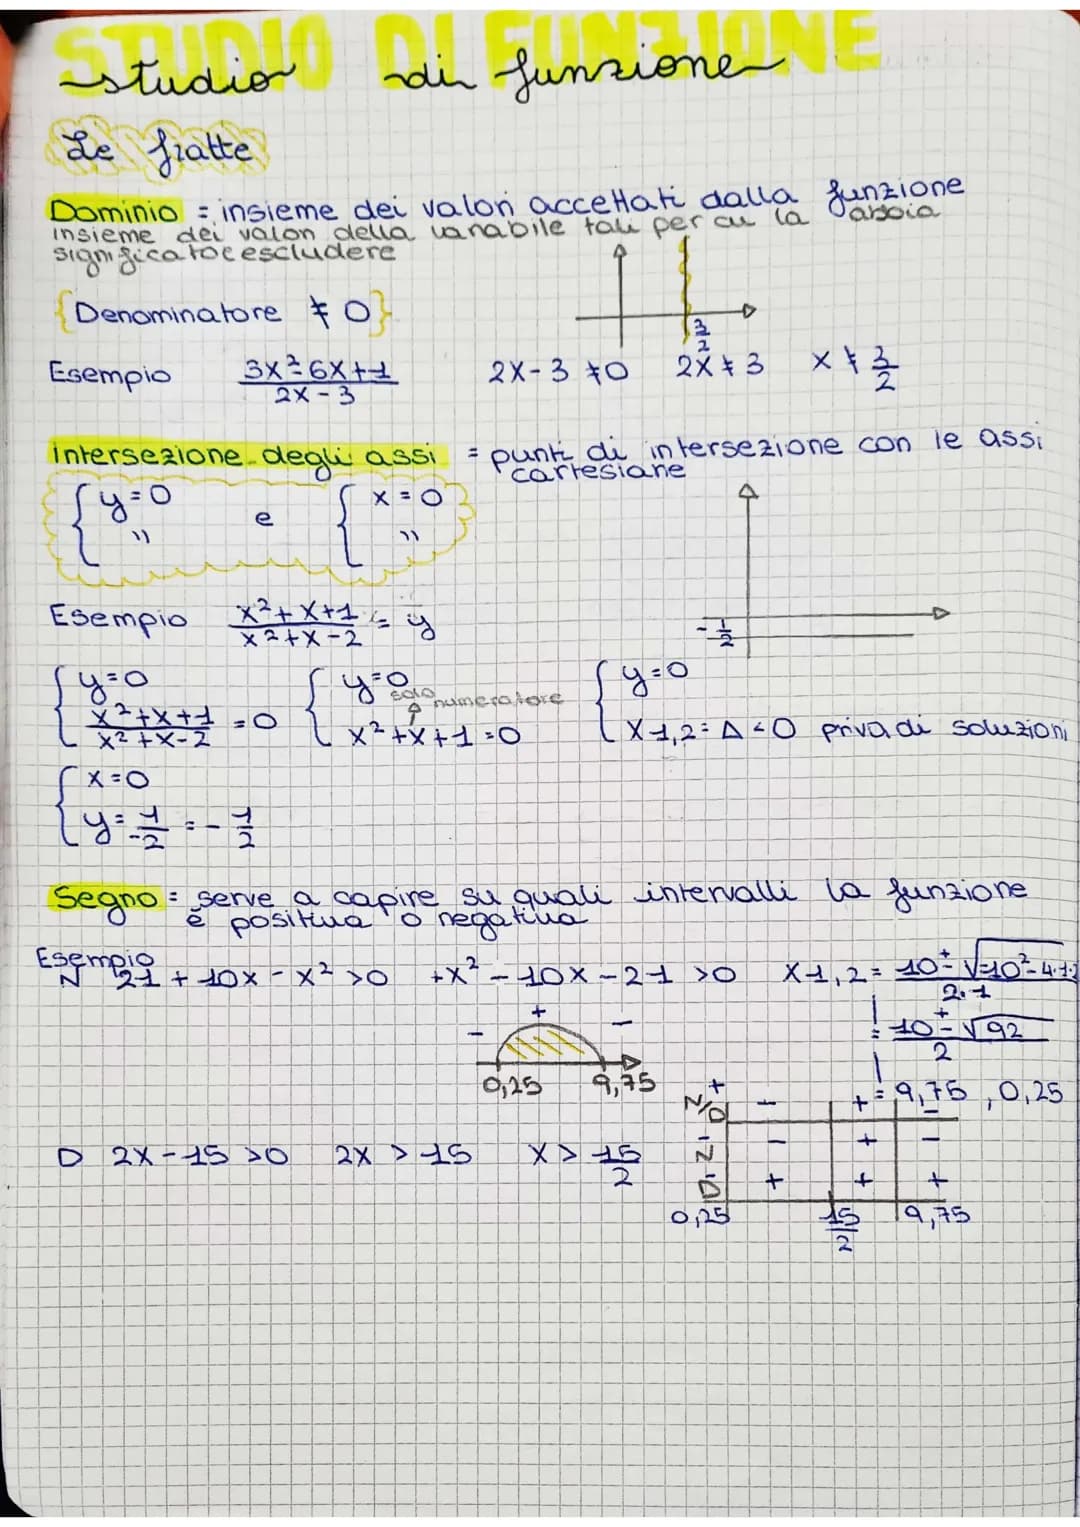 STUDIO DI FUNZIONE
studio di funzione
Le fratte
Dominio = insieme dei valori accettati dalla funzione
insieme dei valori della variabile tali per cui la abbia
significato escludere
{Denominatore ≠ 0}
3/2
Esempio (3x²-6x+1)/(2x-3) 2x-3 ≠0 2x ≠ 3 x ≠ 3/2
intersezione degli assi = punti di intersezione con le assi
cartesiane
{ y=0 e { x=0
" "
Esempio (x²+x+1)/(x²+x-2) = y
-1/2
{ y=0 { y=0 { y=0
solo numeratore
(x²+x+1)/(x²+x-2) =0 x²+x+1=0 x1,2= Δ<0 priva di soluzioni
{ x=0
y= 1/-2 = -1/2
Segno = serve a capire su quali intervalli la funzione
è positiva o negativa
Esempio
N 21 + 10x - x² >0 +x² - 10x - 21 >0 x1,2 = 10 ± √-10²-4·1·
2·1
- + -
= 10 ± √92
2
0,25 9,75
= 9,75 , 0,25
N/D + - + -
D 2x-15 >0 2x > 15 x > 15/2
N - - + -
D - + + +
0,25 15/2 9,75